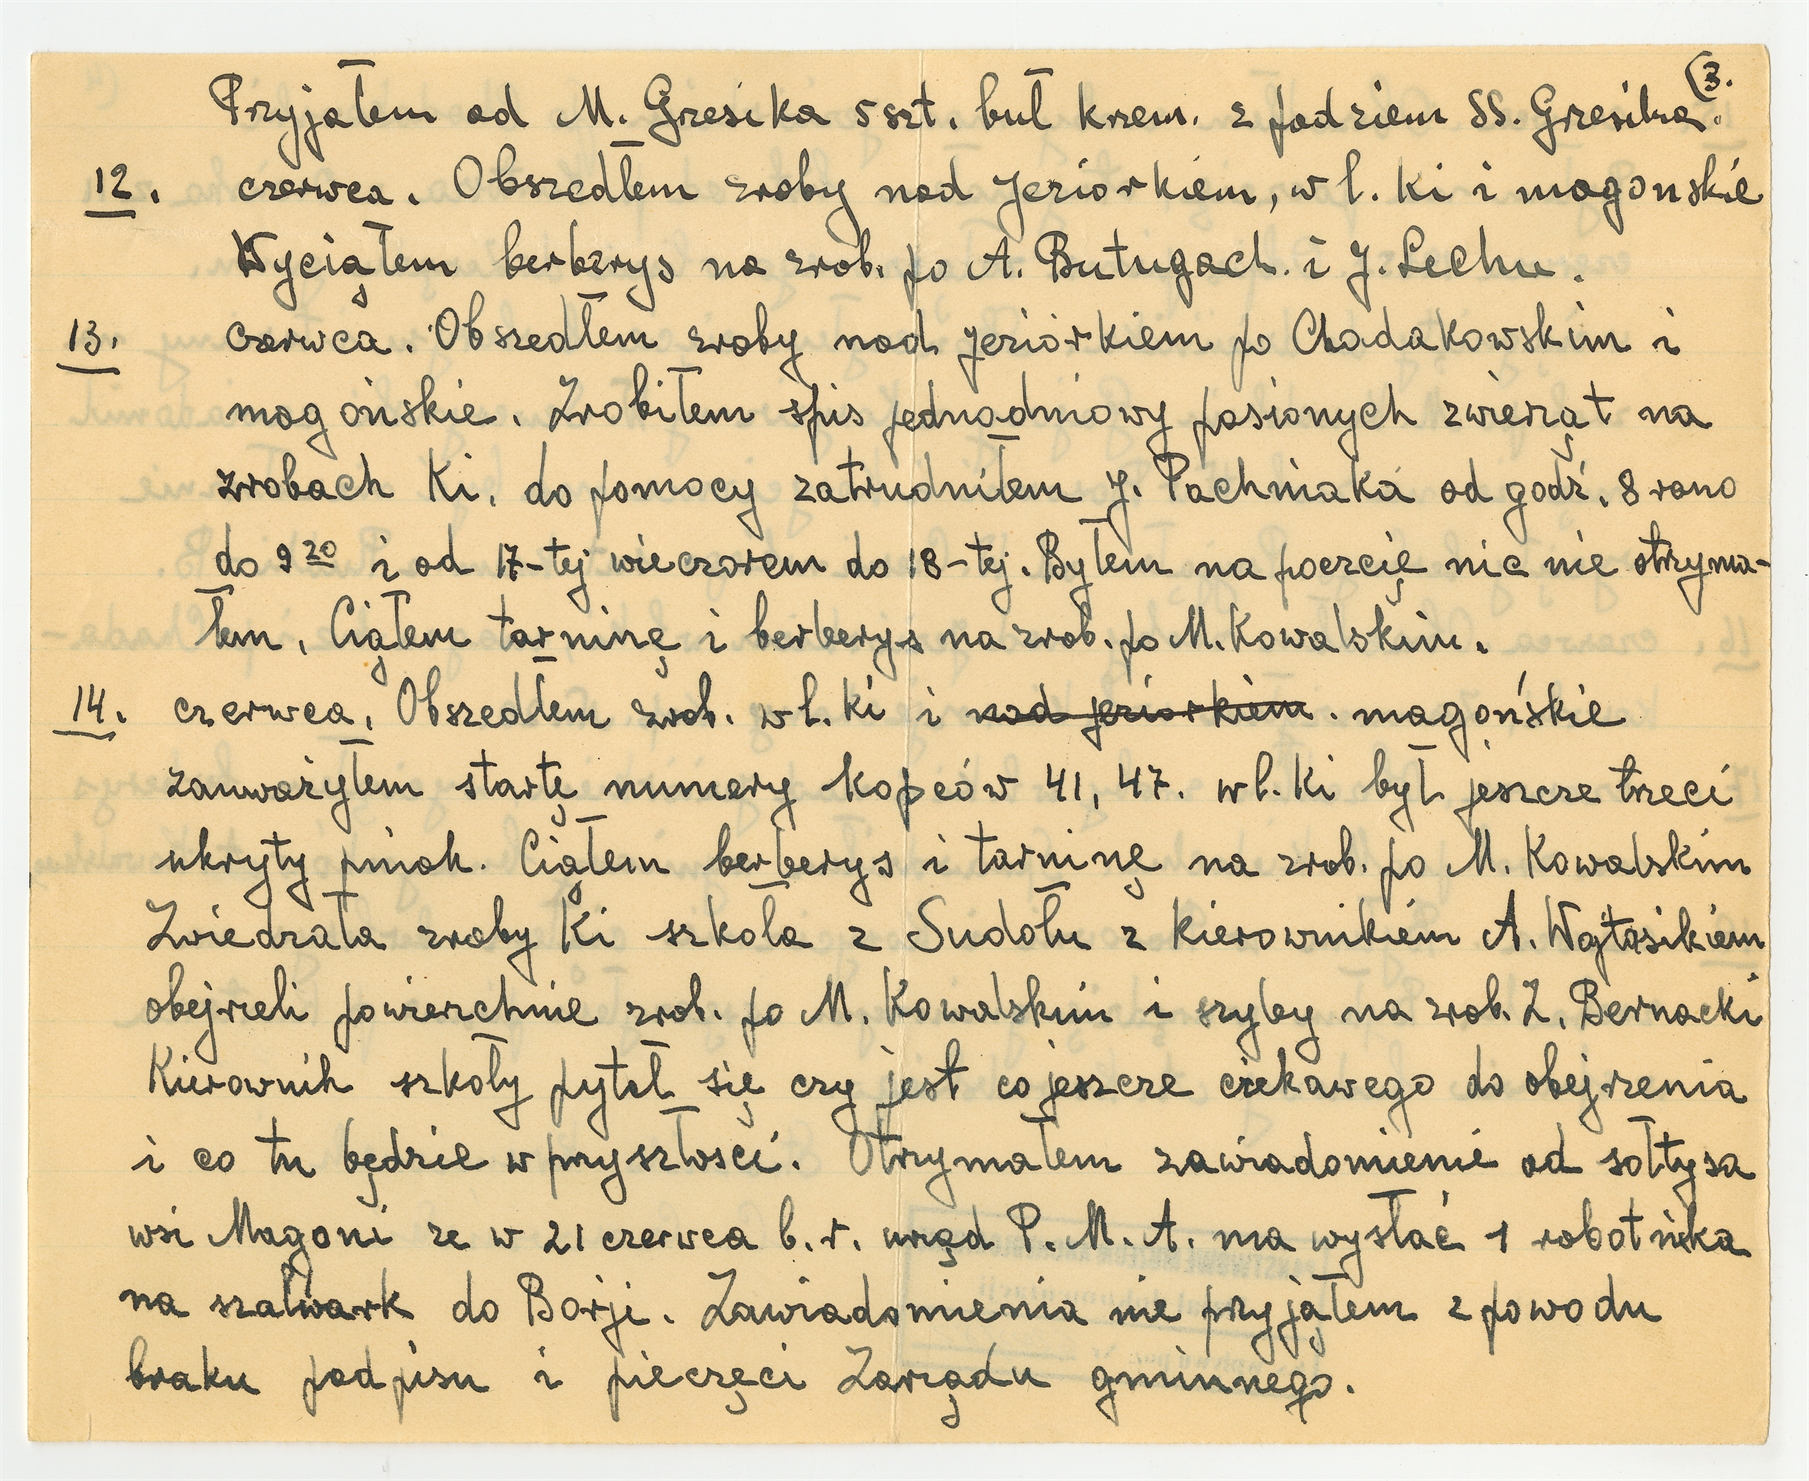 (3.
Przyjąłem od M. Gresika 5 szt. buł krzem. z pod ziem SS. Gresika.
12. czerwca. Obszedłem zroby nad Jeziorkiem, w l. Ki i magonskie
Wyciąłem berbzrys na zrob. po A. Butugach. i J. Lechu.
13. czerwca. Obszedłem zroby nad jeziorkiem po Chodakowskim i
magońskie. Zrobiłem spis jednodniowy pasionych zwierząt na
zrobach Ki. do pomocy zatrudniłem J. Pachniaka od godź. 8 rano
do 9 20 i od 17-tej wieczorem do 18-tej. Byłem na poczcię nic nie otrzyma-
łem. Ciąłem tarninę i berberys na zrob. po M. Kowalskim.
14. czerwca. Obszedłem zrob. w l. Ki i nad jeziorkiem. magońskie
zauważyłem startę numery kopców 41, 47. w l. Ki był jeszcze trzeci
ukryty pniak. Ciąłem berberys i tarninę na zrob. po M. Kowalskim
Zwiedzała zroby Ki szkoła z Sudołu z kierownikiem A. Wojtasikiem
obejrzeli powierzchnie zrob. po M. Kowalskim i szyby na zrob. Z. Bernacki
Kierownik szkoły pytał się czy jest co jeszcze ciekawego do obejrzenia
i co tu będzie w przyszłości. Otrzymałem zawiadomienie od sołtysa
wsi Magoni ze w 21 czerwca b. r. urząd P. M. A. ma wysłać 1 robotnika
na szarwark do Borji. Zawiadomienia nie przyjąłem z powodu
braku podpisu i pieczęci Zarządu gminnego.